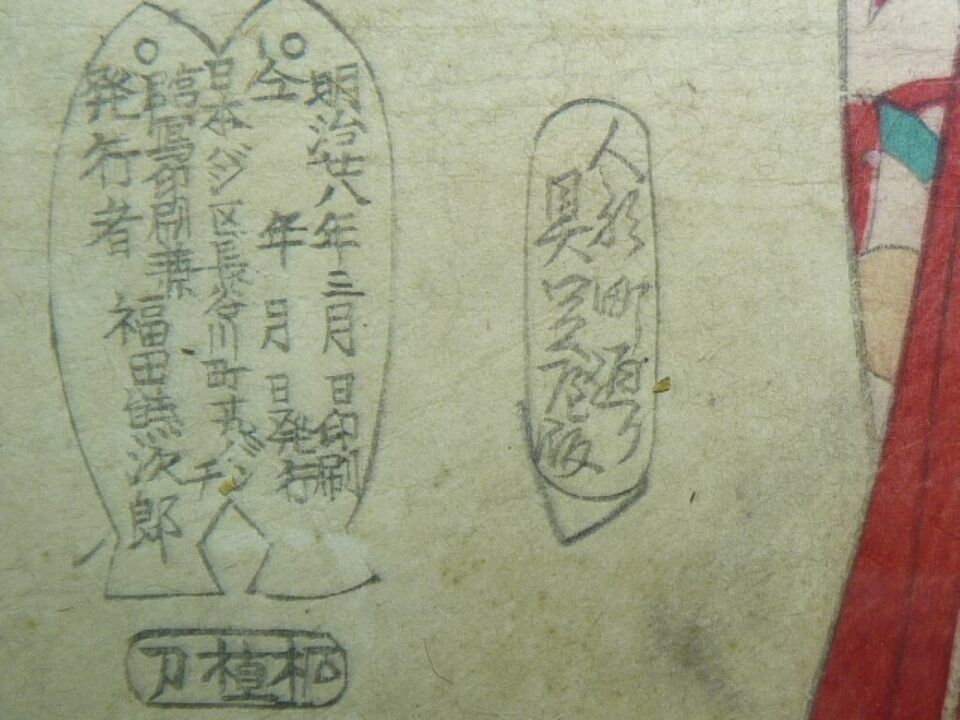 人形町通り
具足屋版
明治廿八年三月 日印刷
仝 年 月 日発行
日本バシ区長谷川町十九バンチ
臨写印刷兼
発行者 福田熊次郎
植刀